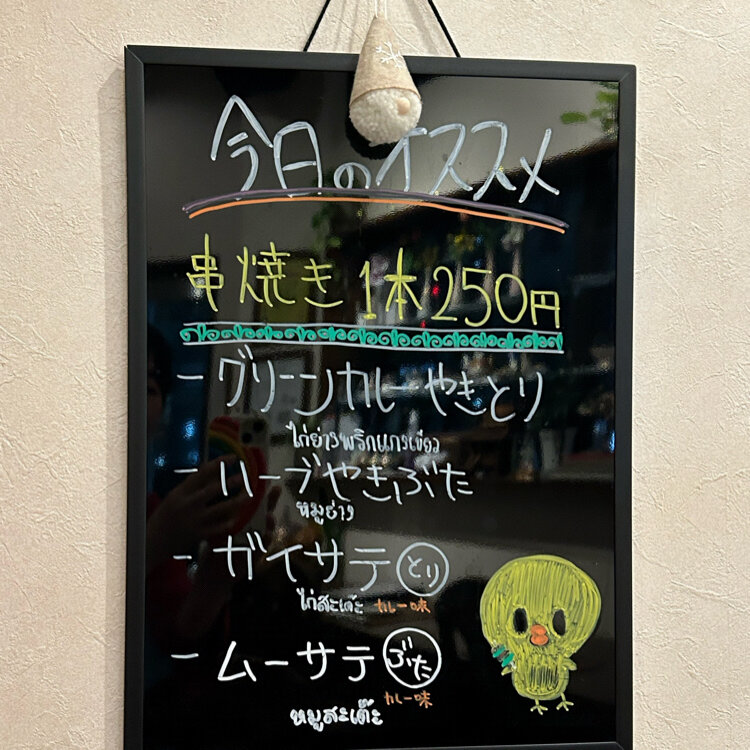 今日のイススメ
串焼き1本250円
- グリーンカレーやきとり
ไก่ย่างพริกแกงเขียว
- ハーブやきぶた
หมูย่าง
- ガイサテ とり
ไก่สะเต๊ะ カレー味
- ムーサテ ぶた
カレー味
หมูสะเต๊ะ